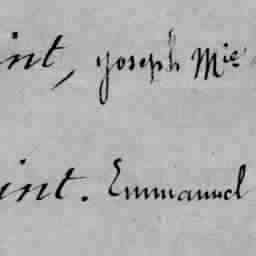 int, Joseph Mie
int. Emmanuel